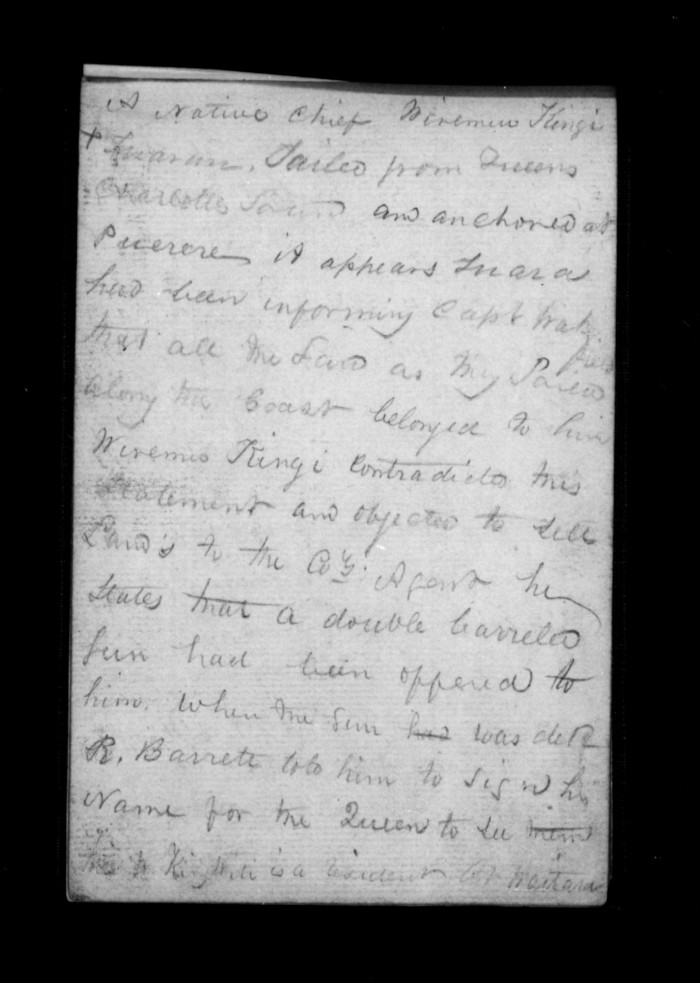 A Native Chief Wiremu Kingi
+ Tuarau. Sailed from Queens
Charlotte Sound and anchored at
Puerere it appears Tuara
had been informing Capt
that all the Land as they Sailed
along the Coast belonged to him
Wiremu Kingi contradicts this
Statement and objected to sell
Land's to the Coy's Agent he
States that a double barreled
Gun had been offered to
him. When the Gun has was
R. Barrett told him to sign his
Name for the Queen to see them
is a resident at Waitara